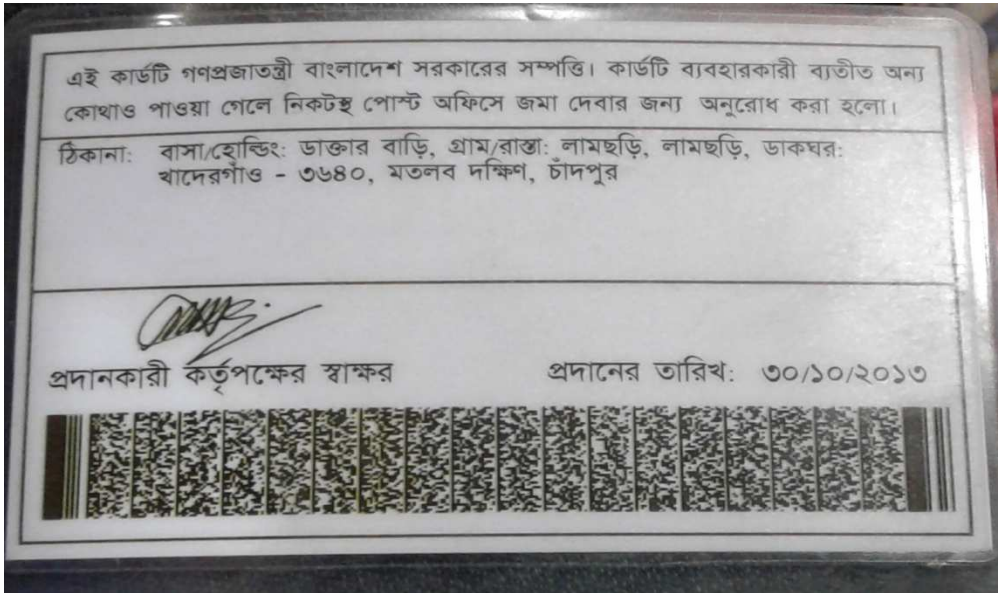 এই কার্ডটি গণপ্রজাতন্ত্রী বাংলাদেশ সরকারের সম্পত্তি। কার্ডটি ব্যবহারকারী ব্যতীত অন্য
কোথাও পাওয়া গেলে নিকটস্থ পোস্ট অফিসে জমা দেবার জন্য অনুরোধ করা হলো।
ঠিকানা: বাসা/হোল্ডিং: ডাক্তার বাড়ি, গ্রাম/রাস্তা: লামছড়ি, লামছড়ি, ডাকঘর:
খাদেরগাঁও - ৩৬৪০, মতলব দক্ষিণ, চাঁদপুর
প্রদানকারী কর্তৃপক্ষের স্বাক্ষর প্রদানের তারিখ: ৩০/১০/২০১৩